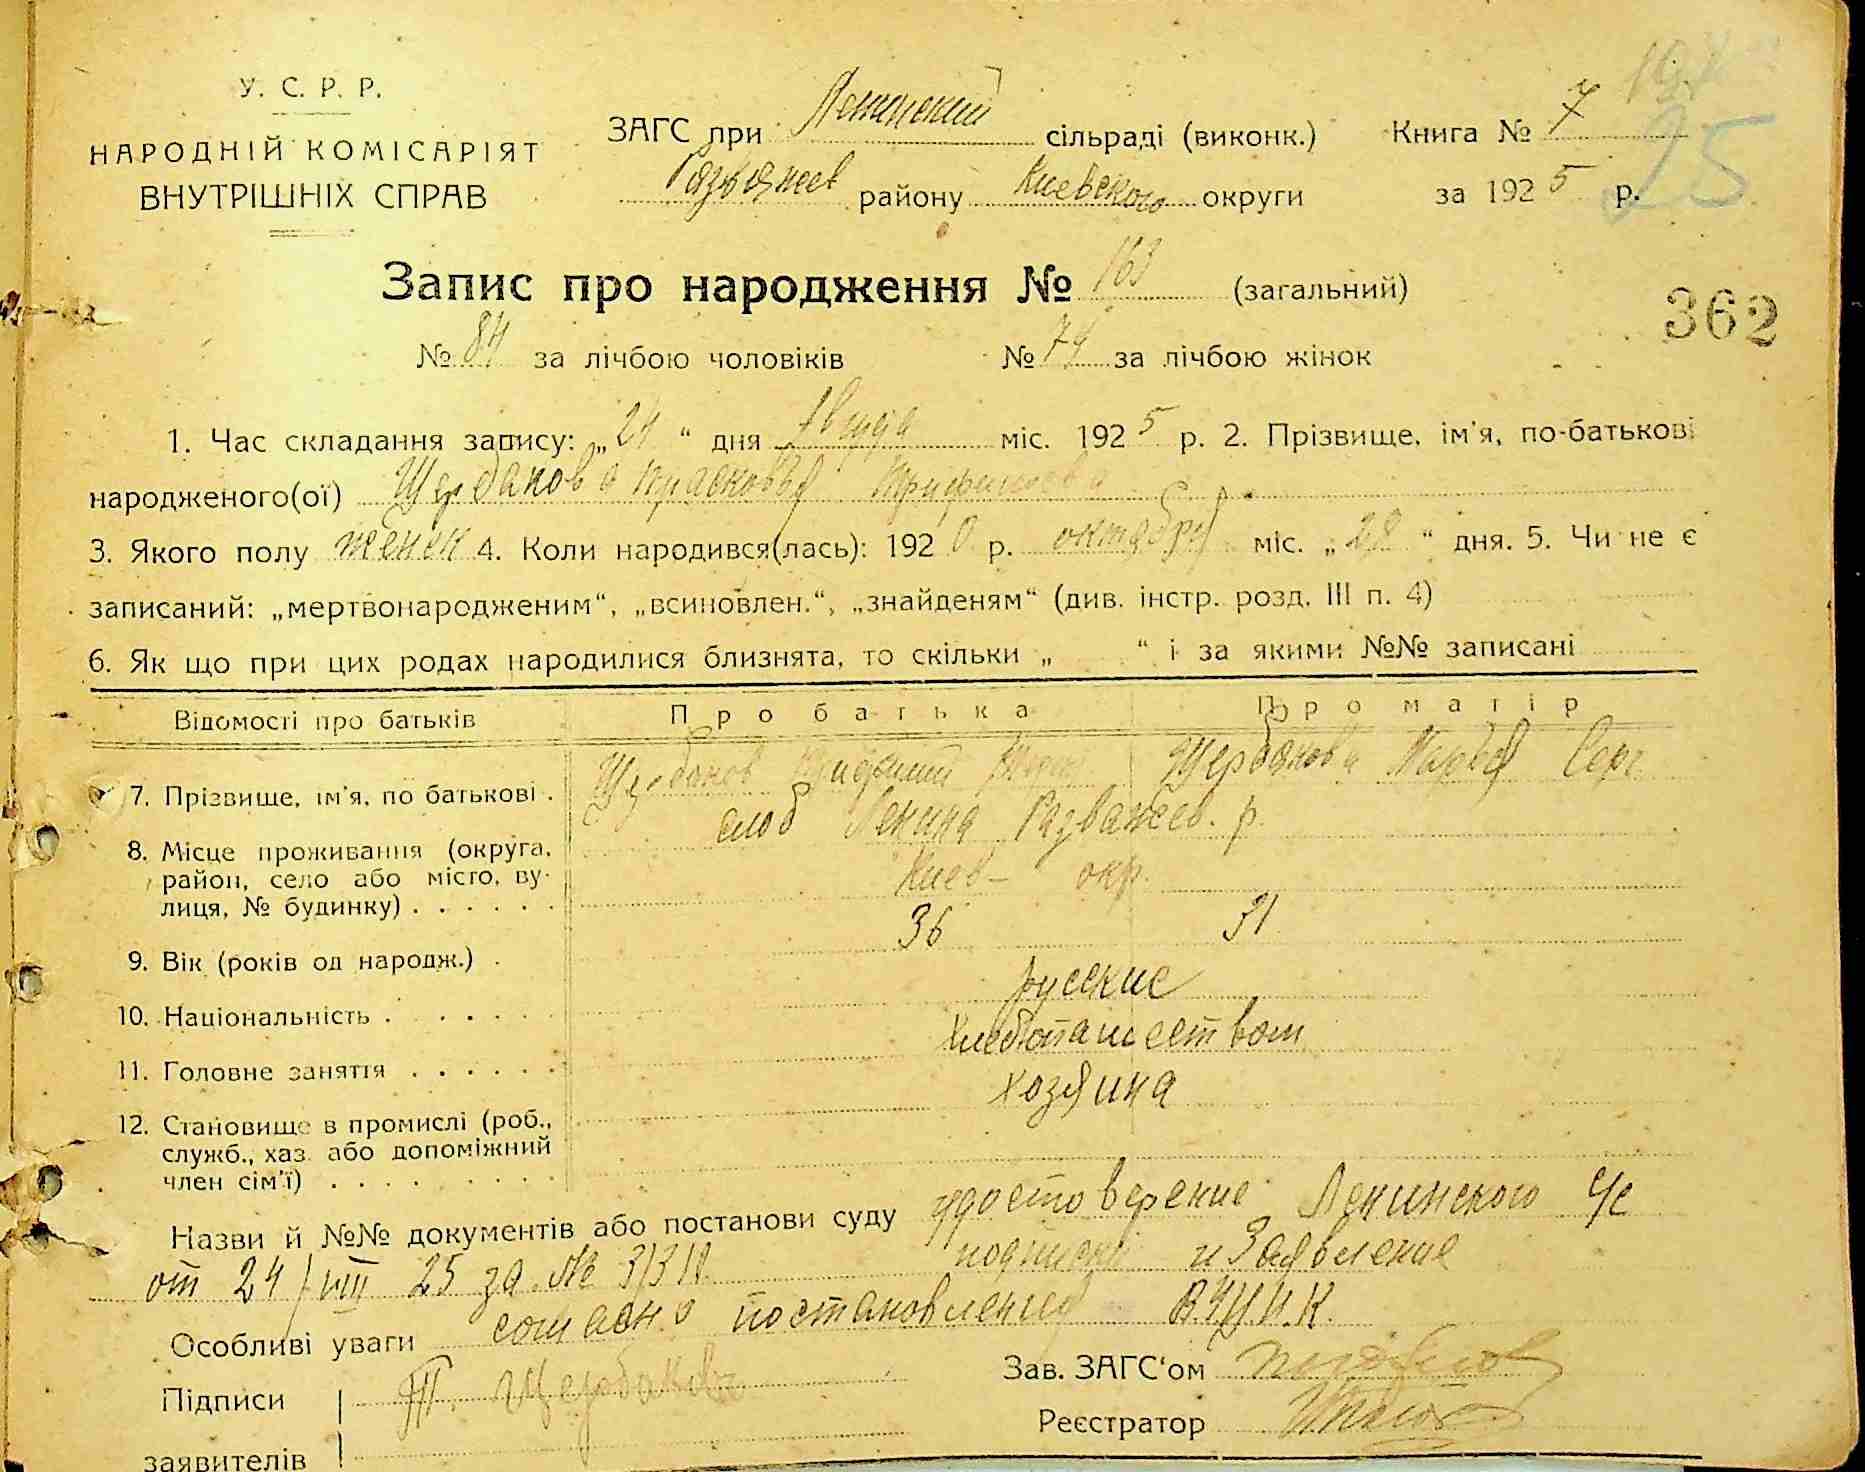 У. С. Р. Р.
НАРОДНІЙ КОМІСАРІЯТ
ВНУТРІШНІХ СПРАВ
25
ЗАГС при Ленинский сільраді (виконк.) Книга № 7
району Киевского округи за 1925 р.
Запис про народження № 163 (загальний)
362
№ 84 за лічбою чоловіків № 79 за лічбою жінок
1. Час складання запису: „24“ дня Августа міс. 1925 р. 2. Прізвище, ім'я, по-батькові
народженого(ої) Щербакова Прасковья
3. Якого полу женск 4. Коли народився(лась): 1920 р. октября міс. „28“ дня. 5. Чи не є
записаний: „мертвонародженим“, „всиновлен.“, „знайденям“ (див. інстр. розд. III п. 4)
6. Як що при цих родах народилися близнята, то скільки „ “ і за якими №№ записані
Відомості про батьків Про батька Про матір
7. Прізвище, ім'я, по батькові . Щербаков Щербакова Марья Серг
8. Місце проживання (округа, слоб Ленина Розважев. р.
район, село або місто, ву- Киев – окр.
лиця, № будинку) . . . . . .
9. Вік (років од народж.) . 36 31
10. Національність . . . . . . русские
11. Головне заняття . . . . . . Хлебопашеством
12. Становище в промислі (роб., хозяина
служб., хаз. або допоміжний
член сім'ї) . . . . . . . . .
Назви й №№ документів або постанови суду удостоверение Ленинского с/с
от 24/VIII 25 за № 3/318 подписки и Заявление
Особливі уваги согласно постановления В.У.Ц.И.К.
Підписи Т. Щербаковъ Зав. ЗАГС'ом
Реєстратор
заявителів